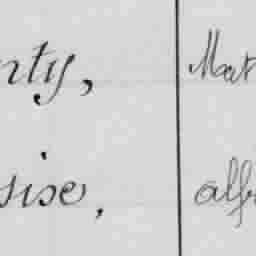 nty, Mat
sise, alf